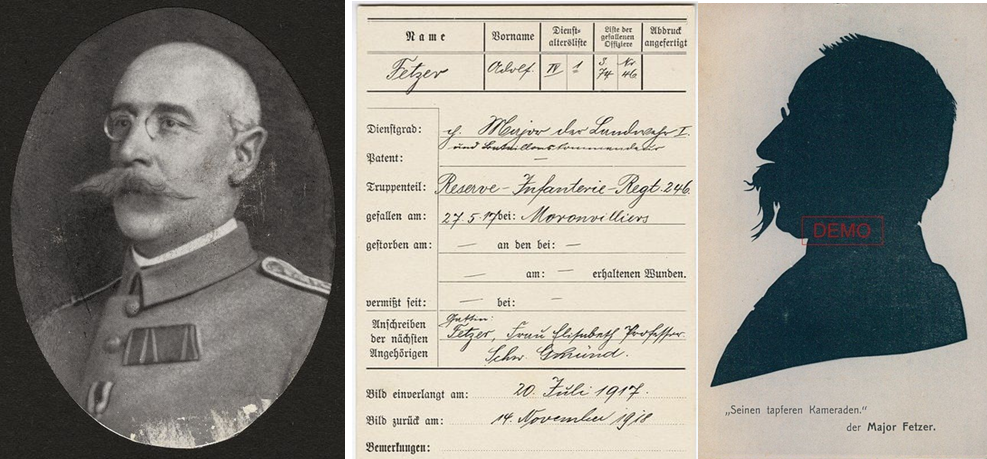 Name Vorname Dienst-altersliste Liste der gefallenen Offiziere Abdruck angefertigt
Fetzer Adolf. IV 1 S. 74 Nr 46
Dienstgrad: Major der Landwehr I.
und Bataillonskommandeur
Patent: —
Truppenteil: Reserve-Infanterie-Regt. 246.
gefallen am: 27.5.17 bei: Moronvilliers
gestorben am: — an den bei: —
— am: — erhaltenen Wunden.
vermißt seit: — bei: —
Gattin:
Anschreiben der nächsten Angehörigen
Fetzer, Frau Elisabeth Professor
Schw. Gmünd.
Bild einverlangt am: 20. Juli 1917.
Bild zurück am: 14. November 1918
Bemerkungen:
DEMO
„Seinen tapferen Kameraden.“
der Major Fetzer.